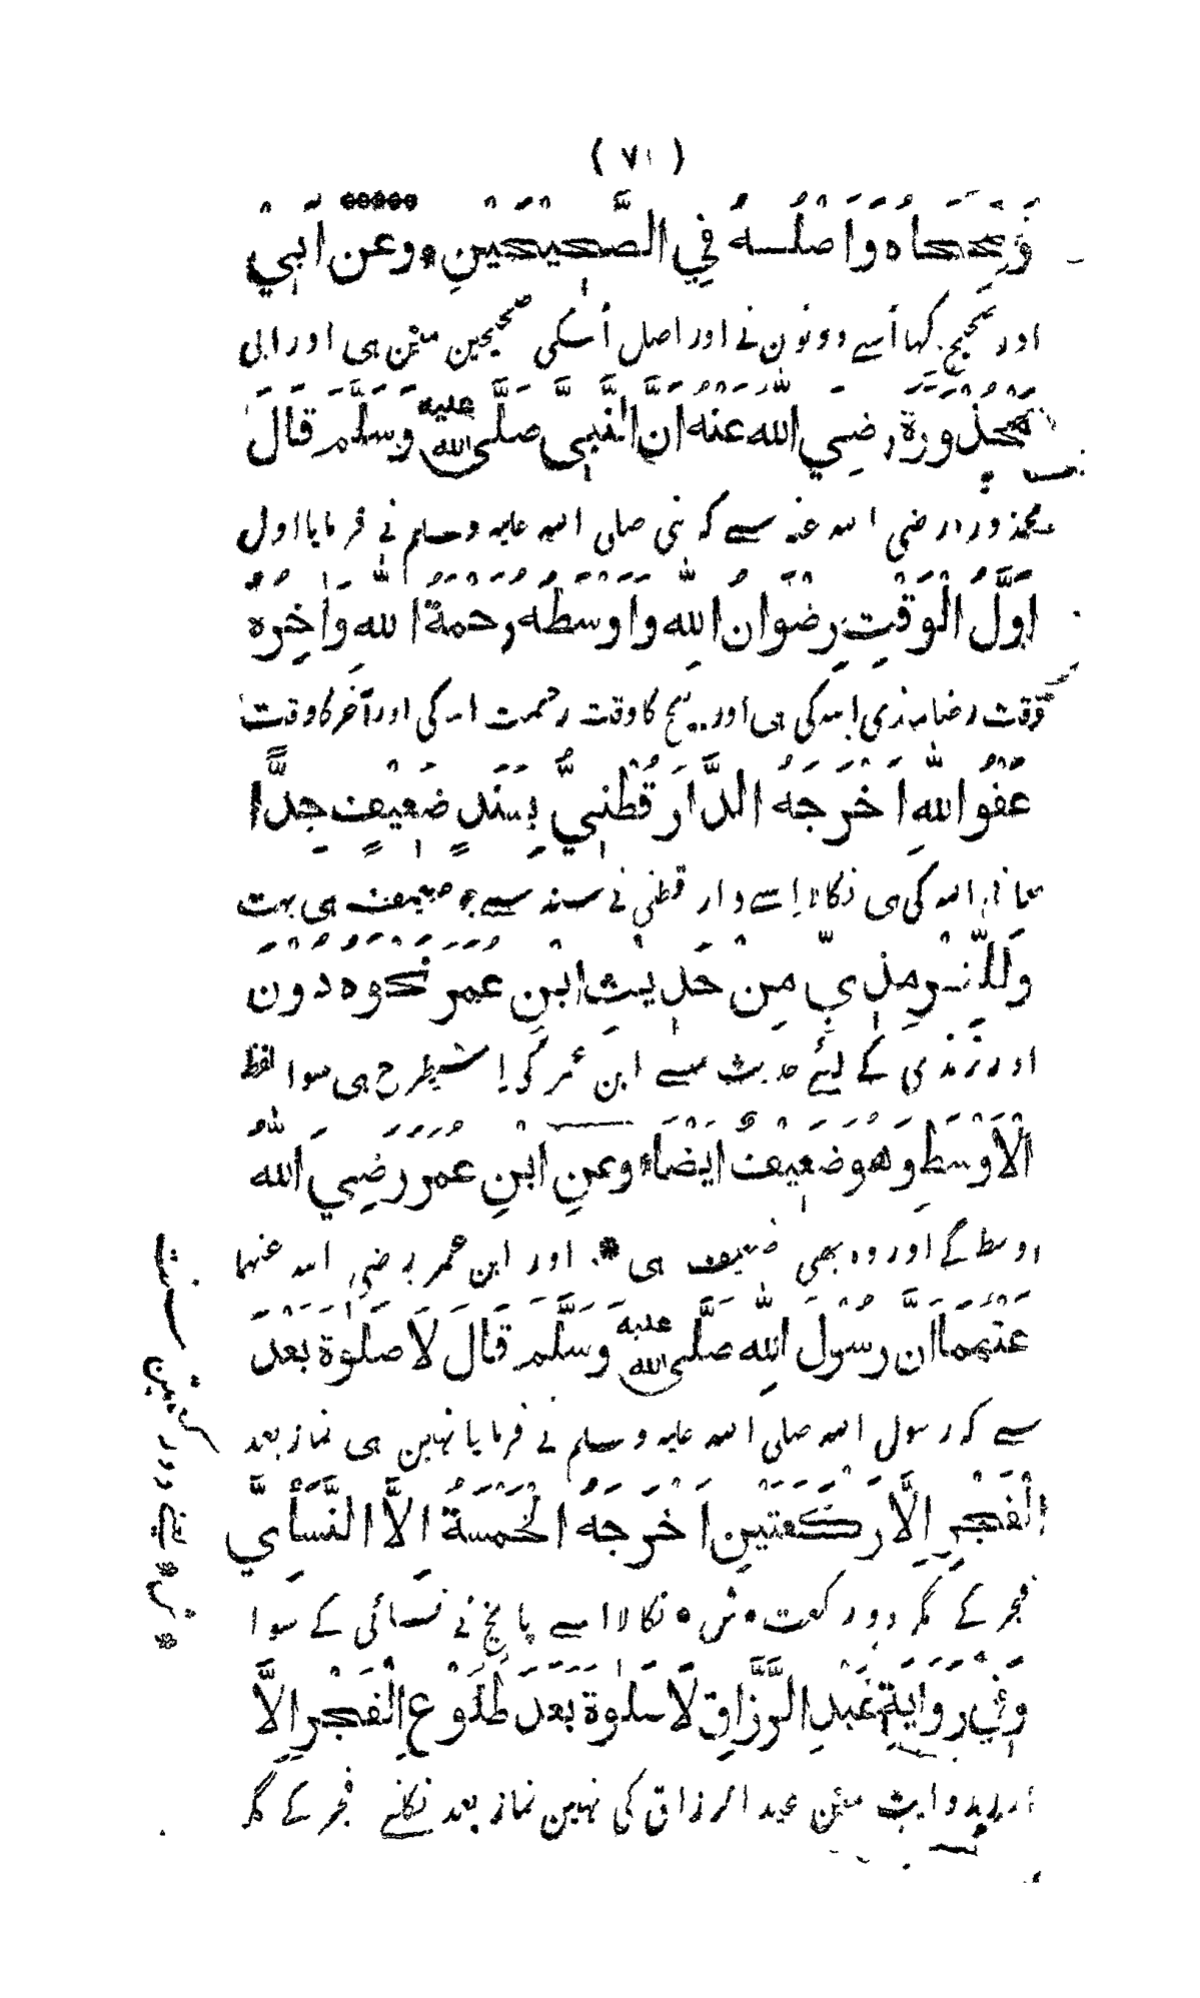 ( ٧١ )
وَصَحَّحَاهُ وَاَصْلُـهُ فِي الصَّحِيْحَيْنِ * وعن اَبِيْ
اور صحیح کہا اُسے دونون نے اور اصل اُسکی صحیحین مین ہی اور ابی
مَحْذُوْرَةَ رضِيَ اللّٰهُ عَنْهُ اَنَّ النَّبِيَّ صَلَّى اللّٰه عليه وَسَلَّمَ قَالَ
محذورہ رضی اللہ عنہ سے کہ نبی صلی اللہ علیہ وسلم نے فرمایا اول
اَوَّلُ الْوَقْتِ رِضْوَانُ اللّٰهِ وَاَوْسَطُهُ رَحْمَةُ اللّٰهِ وَاٰخِرُهُ
وقت رضامندی اللہ کی ہی اور بیچ کا وقت رحمت اللہ کی اور آخر کا وقت
عَفْوُ اللّٰهِ اَخْرَجَهُ الدَّارَقُطْنِيُّ بِسَنَدٍ ضَعِيْفٍ جِدًّا
معافی اللہ کی ہی نکالا اِسے دار قطنی نے سند سے جو ضعیف ہی بہت
وَلِلتِّرْمِذِيِّ مِنْ حَدِيْثِ ابْنِ عُمَرَ نَحْوُهُ دُوْنَ
اور ترمذی کے لیئے حدیث سے ابن عمر کی اِسیطرح ہی سوا لفظ
الْاَوْسَطِ وَهُوَ ضَعِيْفٌ اَيْضًا * وعنِ ابْنِ عُمَرَ رَضِيَ اللّٰهُ
اوسط کے اور وہ بھی ضعیف ہی * اور ابن عمر رضی اللہ عنہما
عَنْهُمَا اَنَّ رَسُوْلَ اللّٰهِ صَلَّى اللّٰه عليه وَسَلَّمَ قَالَ لَا صَلٰوةَ بَعْدَ
سے کہ رسول اللہ صلی اللہ علیہ وسلم نے فرمایا نہین ہی نماز بعد
الْفَجْرِ اِلَّا رَكْعَتَيْنِ اَخْرَجَهُ الْخَمْسَةُ اِلَّا النَّسَائِيَّ
فجر کے مگر دو رکعت * ش * نکالا اسے پانچ نے نسائی کے سوا
وَفِيْ رِوَايَةِ عَبْدِ الرَّزَّاقِ لَا صَلٰوةَ بَعْدَ طُلُوْعِ الْفَجْرِ اِلَّا
اور روایت مین عبد الرزاق کی نہین نماز بعد نکلنے فجر کے مگر
* ش * یعنے دو رکعتین سنت